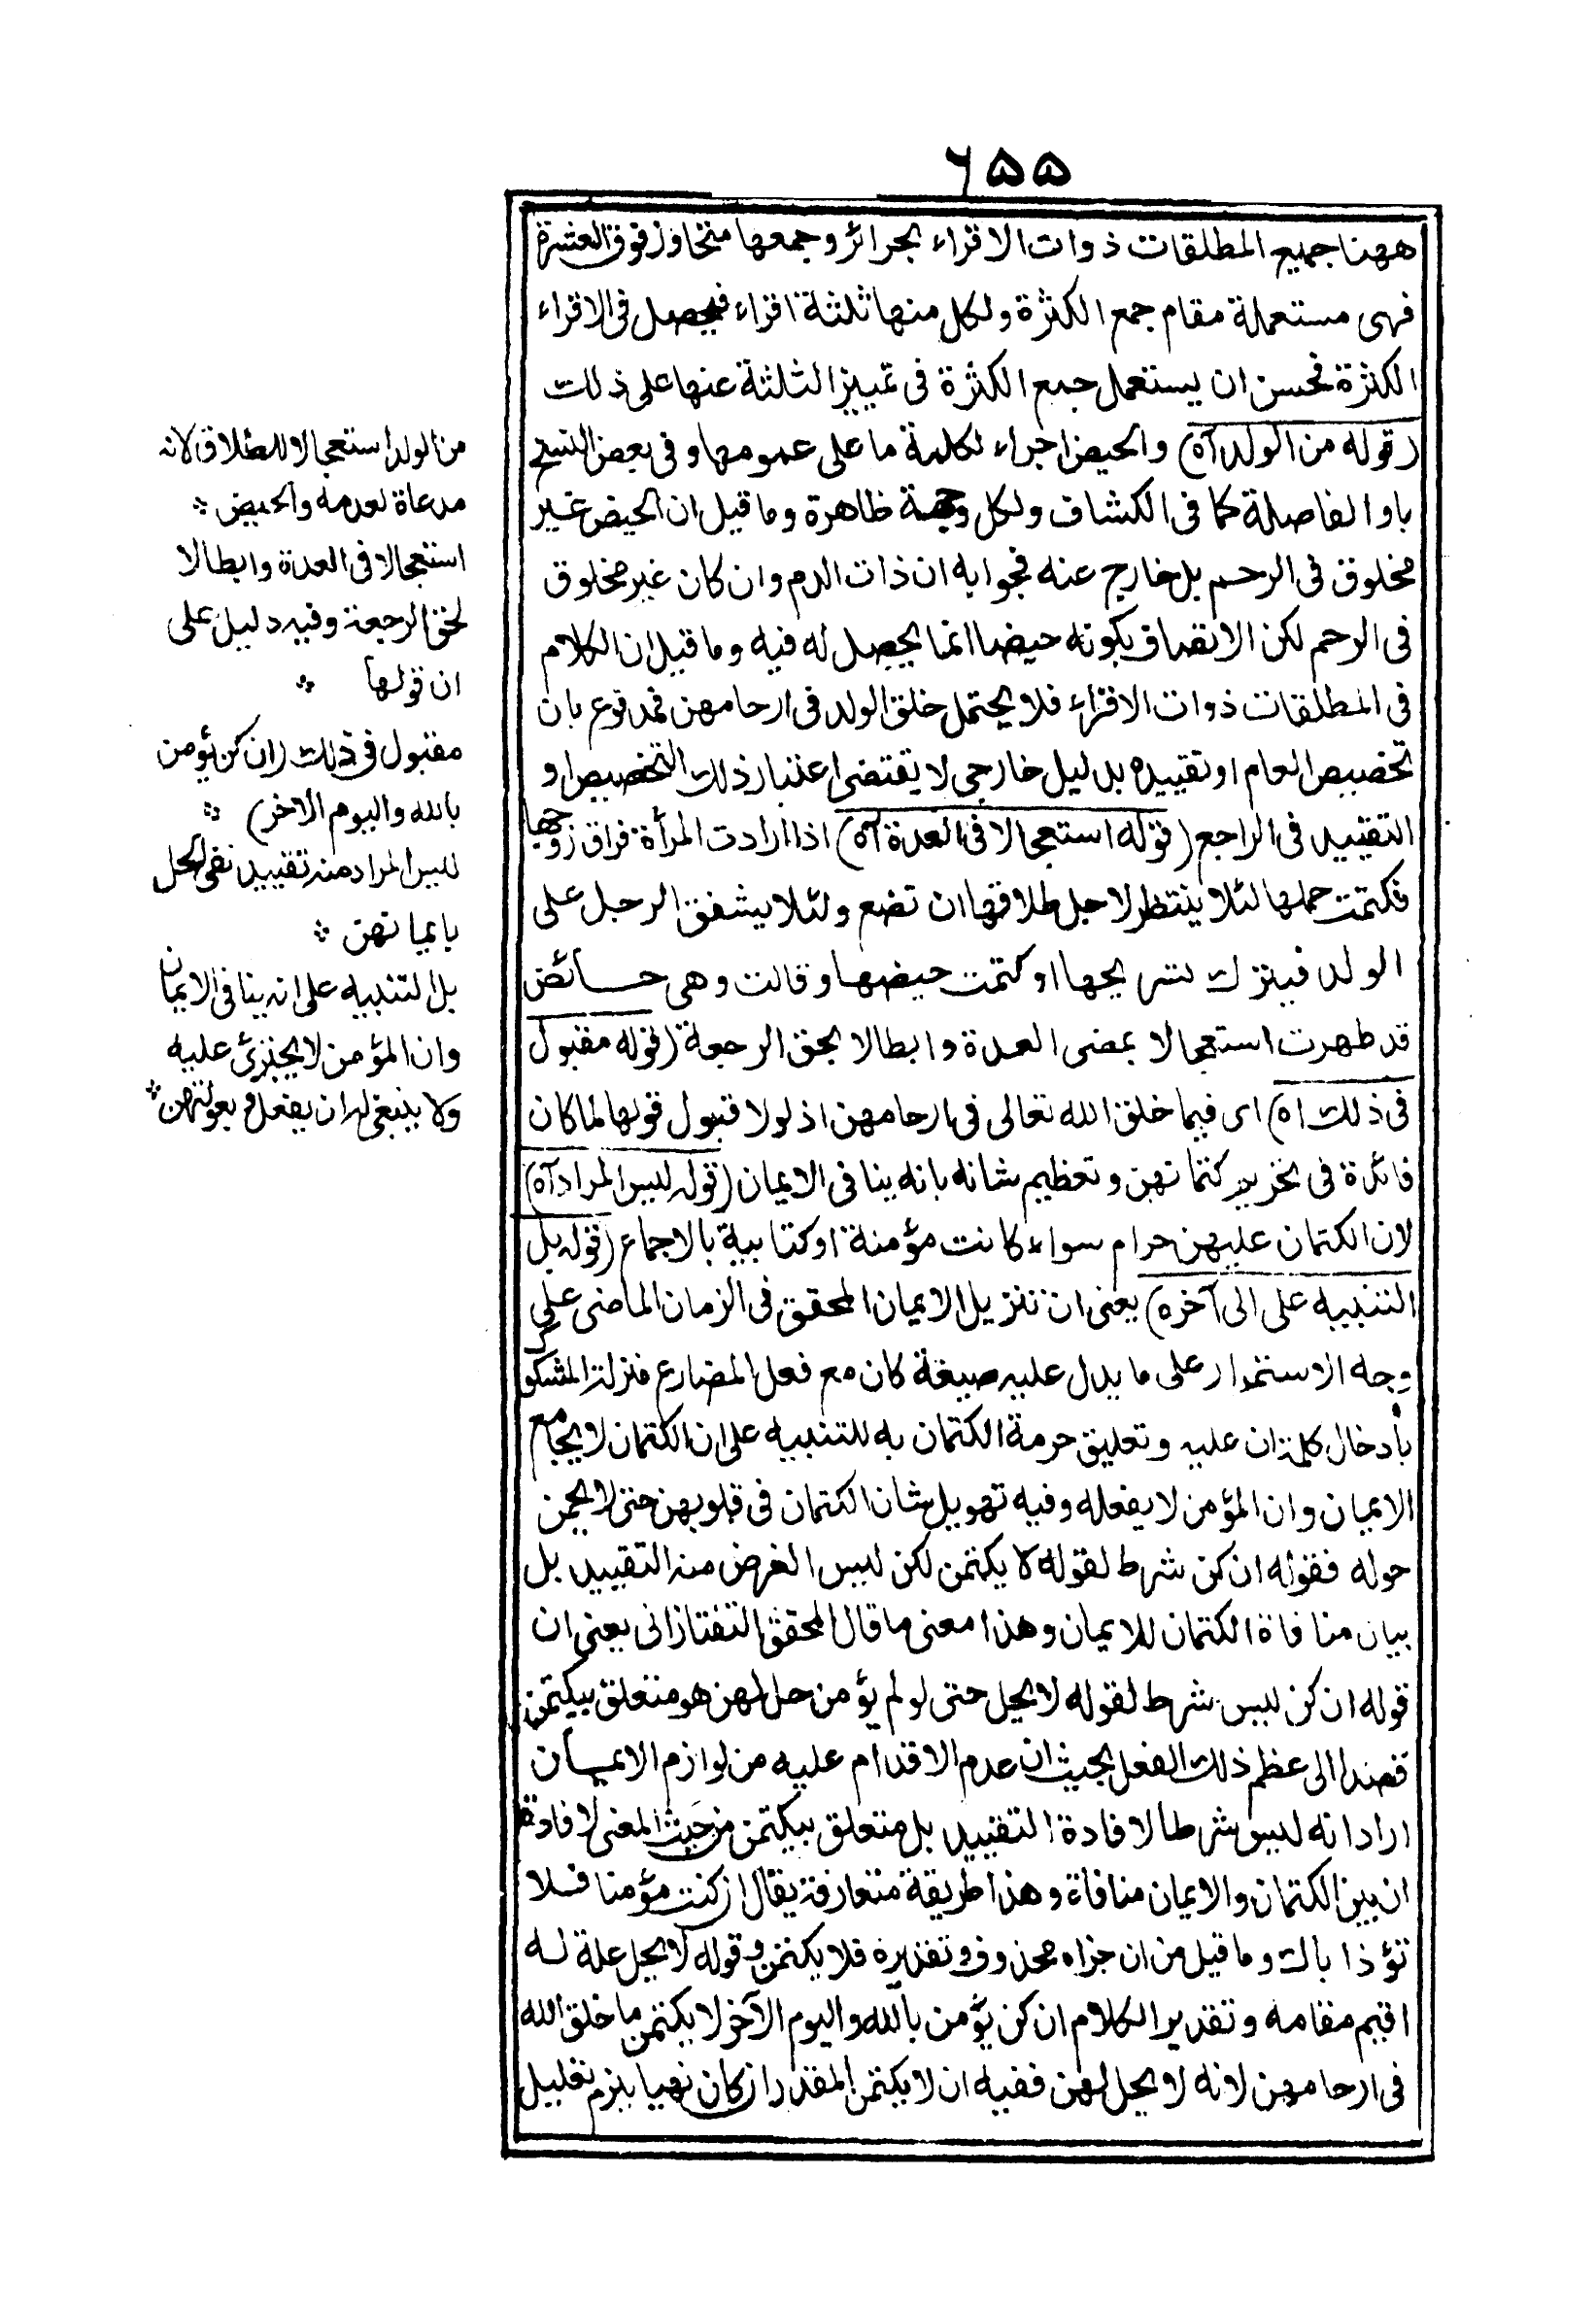 ٦٥٥
ههنا جميع المطلقات ذوات الاقراء الحرائر وجمعها متجاوز فوق العشرة
فهى مستعملة مقام جمع الكثرة ولكل منها ثلثة اقراء فيحصل فى الاقراء
الكثرة فحسن ان يستعمل جمع الكثرة فى تمييز الثلثة عنها على ذلك
(قوله من الولد آه) والحيض اجراء لكلمة ما على عمومها وفى بعض النسخ
باو الفاصلة كما فى الكشاف ولكل وجهة ظاهرة وما قيل ان الحيض غير
مخلوق فى الرحم بل خارج عنه فجوابه ان ذات الدم وان كان غير مخلوق
فى الرحم لكن الاتصاف بكونه حيضا انما يحصل له فيه وما قيل ان الكلام
فى المطلقات ذوات الاقراء فلا يحتمل خلق الولد فى ارحامهن فمدفوع بان
تخصيص العام او تقييده بدليل خارجى لا يقتضى اعتبار ذلك التخصيص او
التقييد فى الراجع (قوله استعجالا فى العدة آه) اذا ارادت المرأة فراق زوجها
فكتمت حملها لئلا ينتظر لاجل طلاقها ان تضع ولئلا يشفق الرجل على
الولد فيترك تسريحها او كتمت حيضها وقالت وهى حائض
قد طهرت استعجالا بمضى العدة وابطالا بحق الرجعة (قوله مقبول
فى ذلك اه) اى فيما خلق الله تعالى فى ارحامهن اذ لولا قبول قولها لما كان
فائدة فى تحريم كتمانهن وتعظيم شانه بانه ينافى الايمان (قوله ليس المراد آه)
لان الكتمان عليهن حرام سواء كانت مؤمنة او كتابية بالاجماع (قوله بل
التنبيه على الى آخره) يعنى ان تنزيل الايمان المحقق فى الزمان الماضى على
وجه الاستمرار على ما يدل عليه صيغة كان مع فعل المضارع منزلة المشكوك
بادخال كلمة ان عليه وتعليق حرمة الكتمان به للتنبيه على ان الكتمان لا يجامع
الايمان وان المؤمن لا يفعله وفيه تهويل شان الكتمان فى قلوبهن حتى لا يحمن
حوله فقوله ان كن شرط لقوله لا يكتمن لكن ليس الغرض منه التقييد بل
بيان منافاة الكتمان للايمان وهذا معنى ما قال المحقق التفتازانى يعنى ان
قوله ان كن ليس شرط لقوله لا يحل حتى لو لم يؤمن حل لهن هو متعلق بيكتمن
قصدا الى عظم ذلك الفعل بحيث ان عدم الاقدام عليه من لوازم الايمان
اراد انه ليس شرطا لافادة التقييد بل متعلق بيكتمن من حيث المعنى لافادة
ان بين الكتمان والايمان منافاة وهذا طريقة متعارفة يقال ان كنت مؤمنا فلا
تؤذ اباك وما قيل من ان جزاه محذوف وتقديره فلا يكتمن وقوله لا يحل علة له
اقيم مقامه وتقدير الكلام ان كن يؤمن بالله واليوم الآخر لا يكتمن ما خلق الله
فى ارحامهن لانه لا يحل لهن ففيه ان لا يكتمن المقدر ان كان نهيا يلزم تعليل
من الولد استعجالا للطلاق لانه
مدعاة لعدمه والحيض
استعجالا فى العدة وابطالا
لحق الرجعة وفيه دليل على
ان قولها
مقبول فى ذلك (ان كن يؤمن
بالله واليوم الاخر)
ليس المراد منه تقييد نفى الحل
بايمانهن
بل التنبيه على انه ينافى الايمان
وان المؤمن لا يجترئ عليه
ولا ينبغى له ان يفعل وبعولتهن